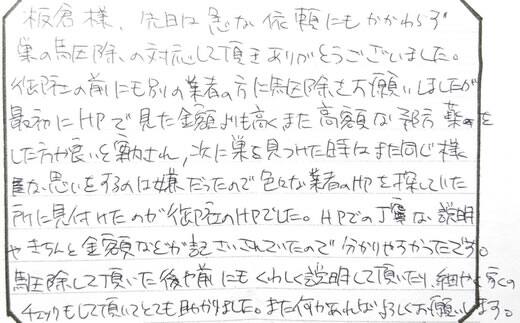 板倉様、先日は急な依頼にもかかわらず
巣の駆除の対応して頂きありがとうございました。
御社の前にも別の業者の方に駆除をお願いしましたが
最初にHPで見た金額よりも高くまた高額な予防薬を
した方が良いと案内され、次に巣を見つけた時はまた同じ様
な思いをするのは嫌だったので色々な業者のHPを探していた
所に見付けたのが御社のHPでした。HPでの丁寧な説明
やきちんと金額などが記さいされていたので分かりやすかったです。
駆除して頂いた後や前にもくわしく説明して頂いたり、細かく家の
チェックもして頂いてとても助かりました。また何かあればよろしくお願いします。